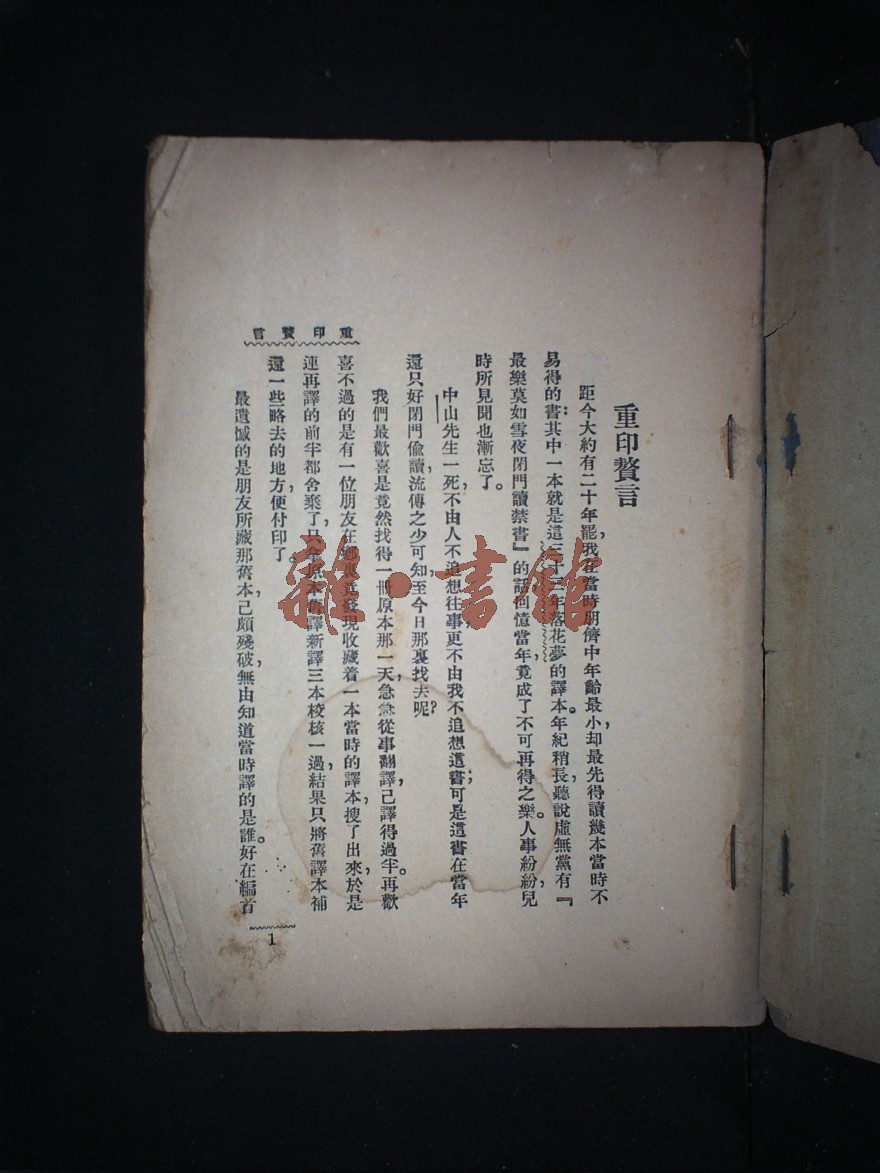 重印贅言
距今大約有二十年罷,我在當時朋儕中年齡最小,却最先得讀幾本當時不
易得的書:其中一本就是這三十三年落花夢的譯本。年紀稍長,聽說虛無黨有『
最樂莫如雪夜閉門讀禁書』的話,回憶當年,竟成了不可再得之樂。人事紛紛,兒
時所見聞也漸忘了。
中山先生一死,不由人不追想往事,更不由我不追想這書;可是這書在當年
還只好閉門偸讀,流傳之少可知,至今日那裏找去呢?
我們最歡喜是竟然找得一冊原本那一天,急急從事翻譯,已譯得過半。再歡
喜不過的是有一位朋友在鄉裏竟發現收藏着一本當時的譯本,搜了出來,於是
連再譯的前半都舍棄了,只拿原本舊譯新譯三本校核一過,結果只將舊譯本補
還一些略去的地方,便付印了。
最遺憾的是朋友所藏那舊本,已頗殘破,無由知道當時譯的是誰。好在編首
重印贅言
1
雜·書館